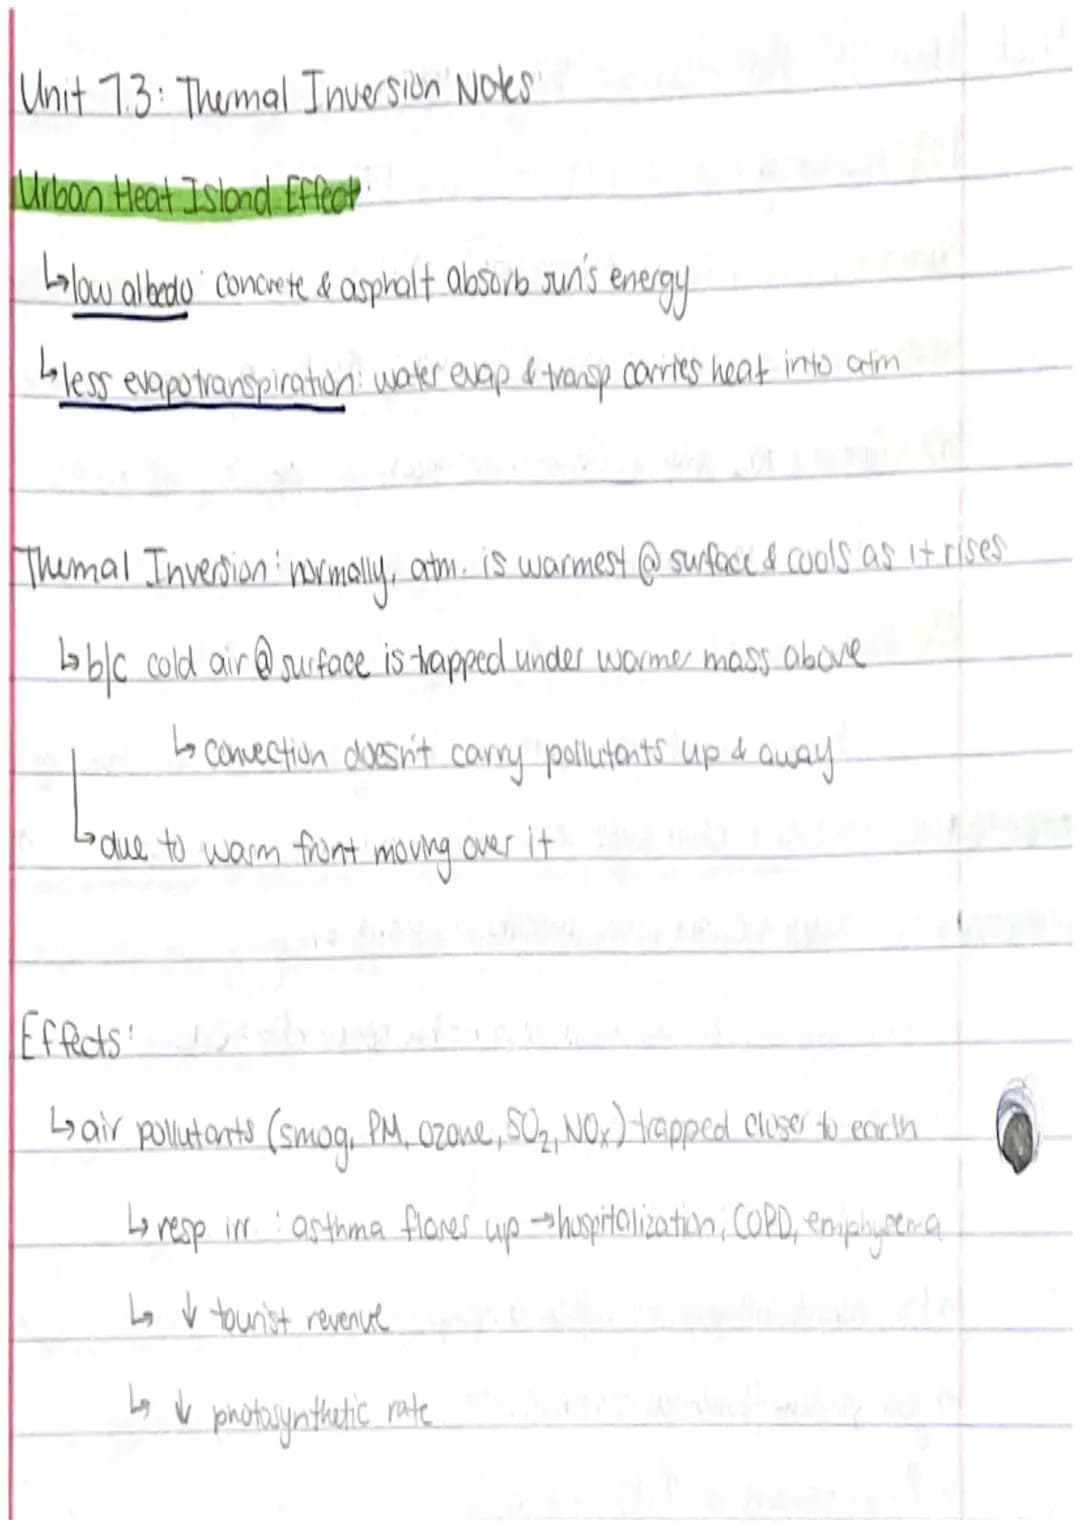 Unit 7.3: Thermal Inversion Notes
Urban Heat Island Effect:
↳low albedo: concrete & asphalt absorb sun's energy
↳less evapotranspiration: water evap & transp carries heat into atm
Thermal Inversion: normally, atm. is warmest @ surface & cools as it rises
↳b/c cold air @ surface is trapped under warmer mass above
↳ convection doesn't carry pollutants up & away
↳due to warm front moving over it
Effects:
↳air pollutants (smog, PM, ozone, SO₂, NOₓ) trapped closer to earth
↳ resp irr.: asthma flares up →hospitalization; COPD, emphysema
↳ ↓ tourist revenue
↳ ↓ photosynthetic rate